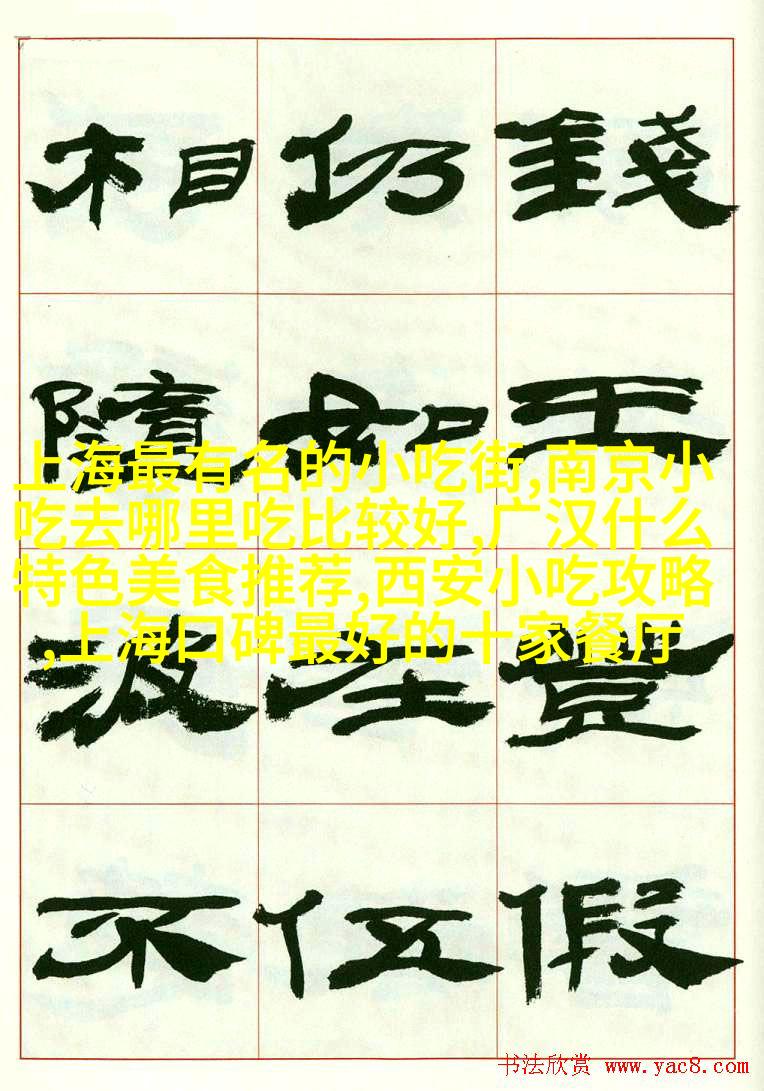 錢王豈假
仍伍
相隨波不
上海最有名的小吃街,南京小
吃去哪里吃比较好,广汉什么
特色美食推荐,西安小吃攻略
,上海口碑最好的十家餐厅
书法欣赏 www.yac8.com